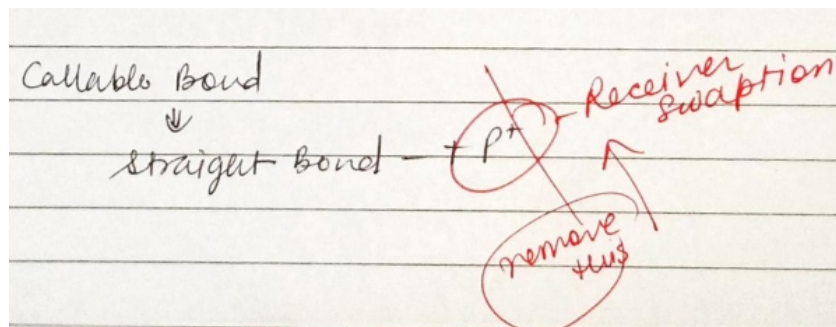 Callable Bond
⇓
Straight Bond — + P+ - Receiver
swaption
remove
this